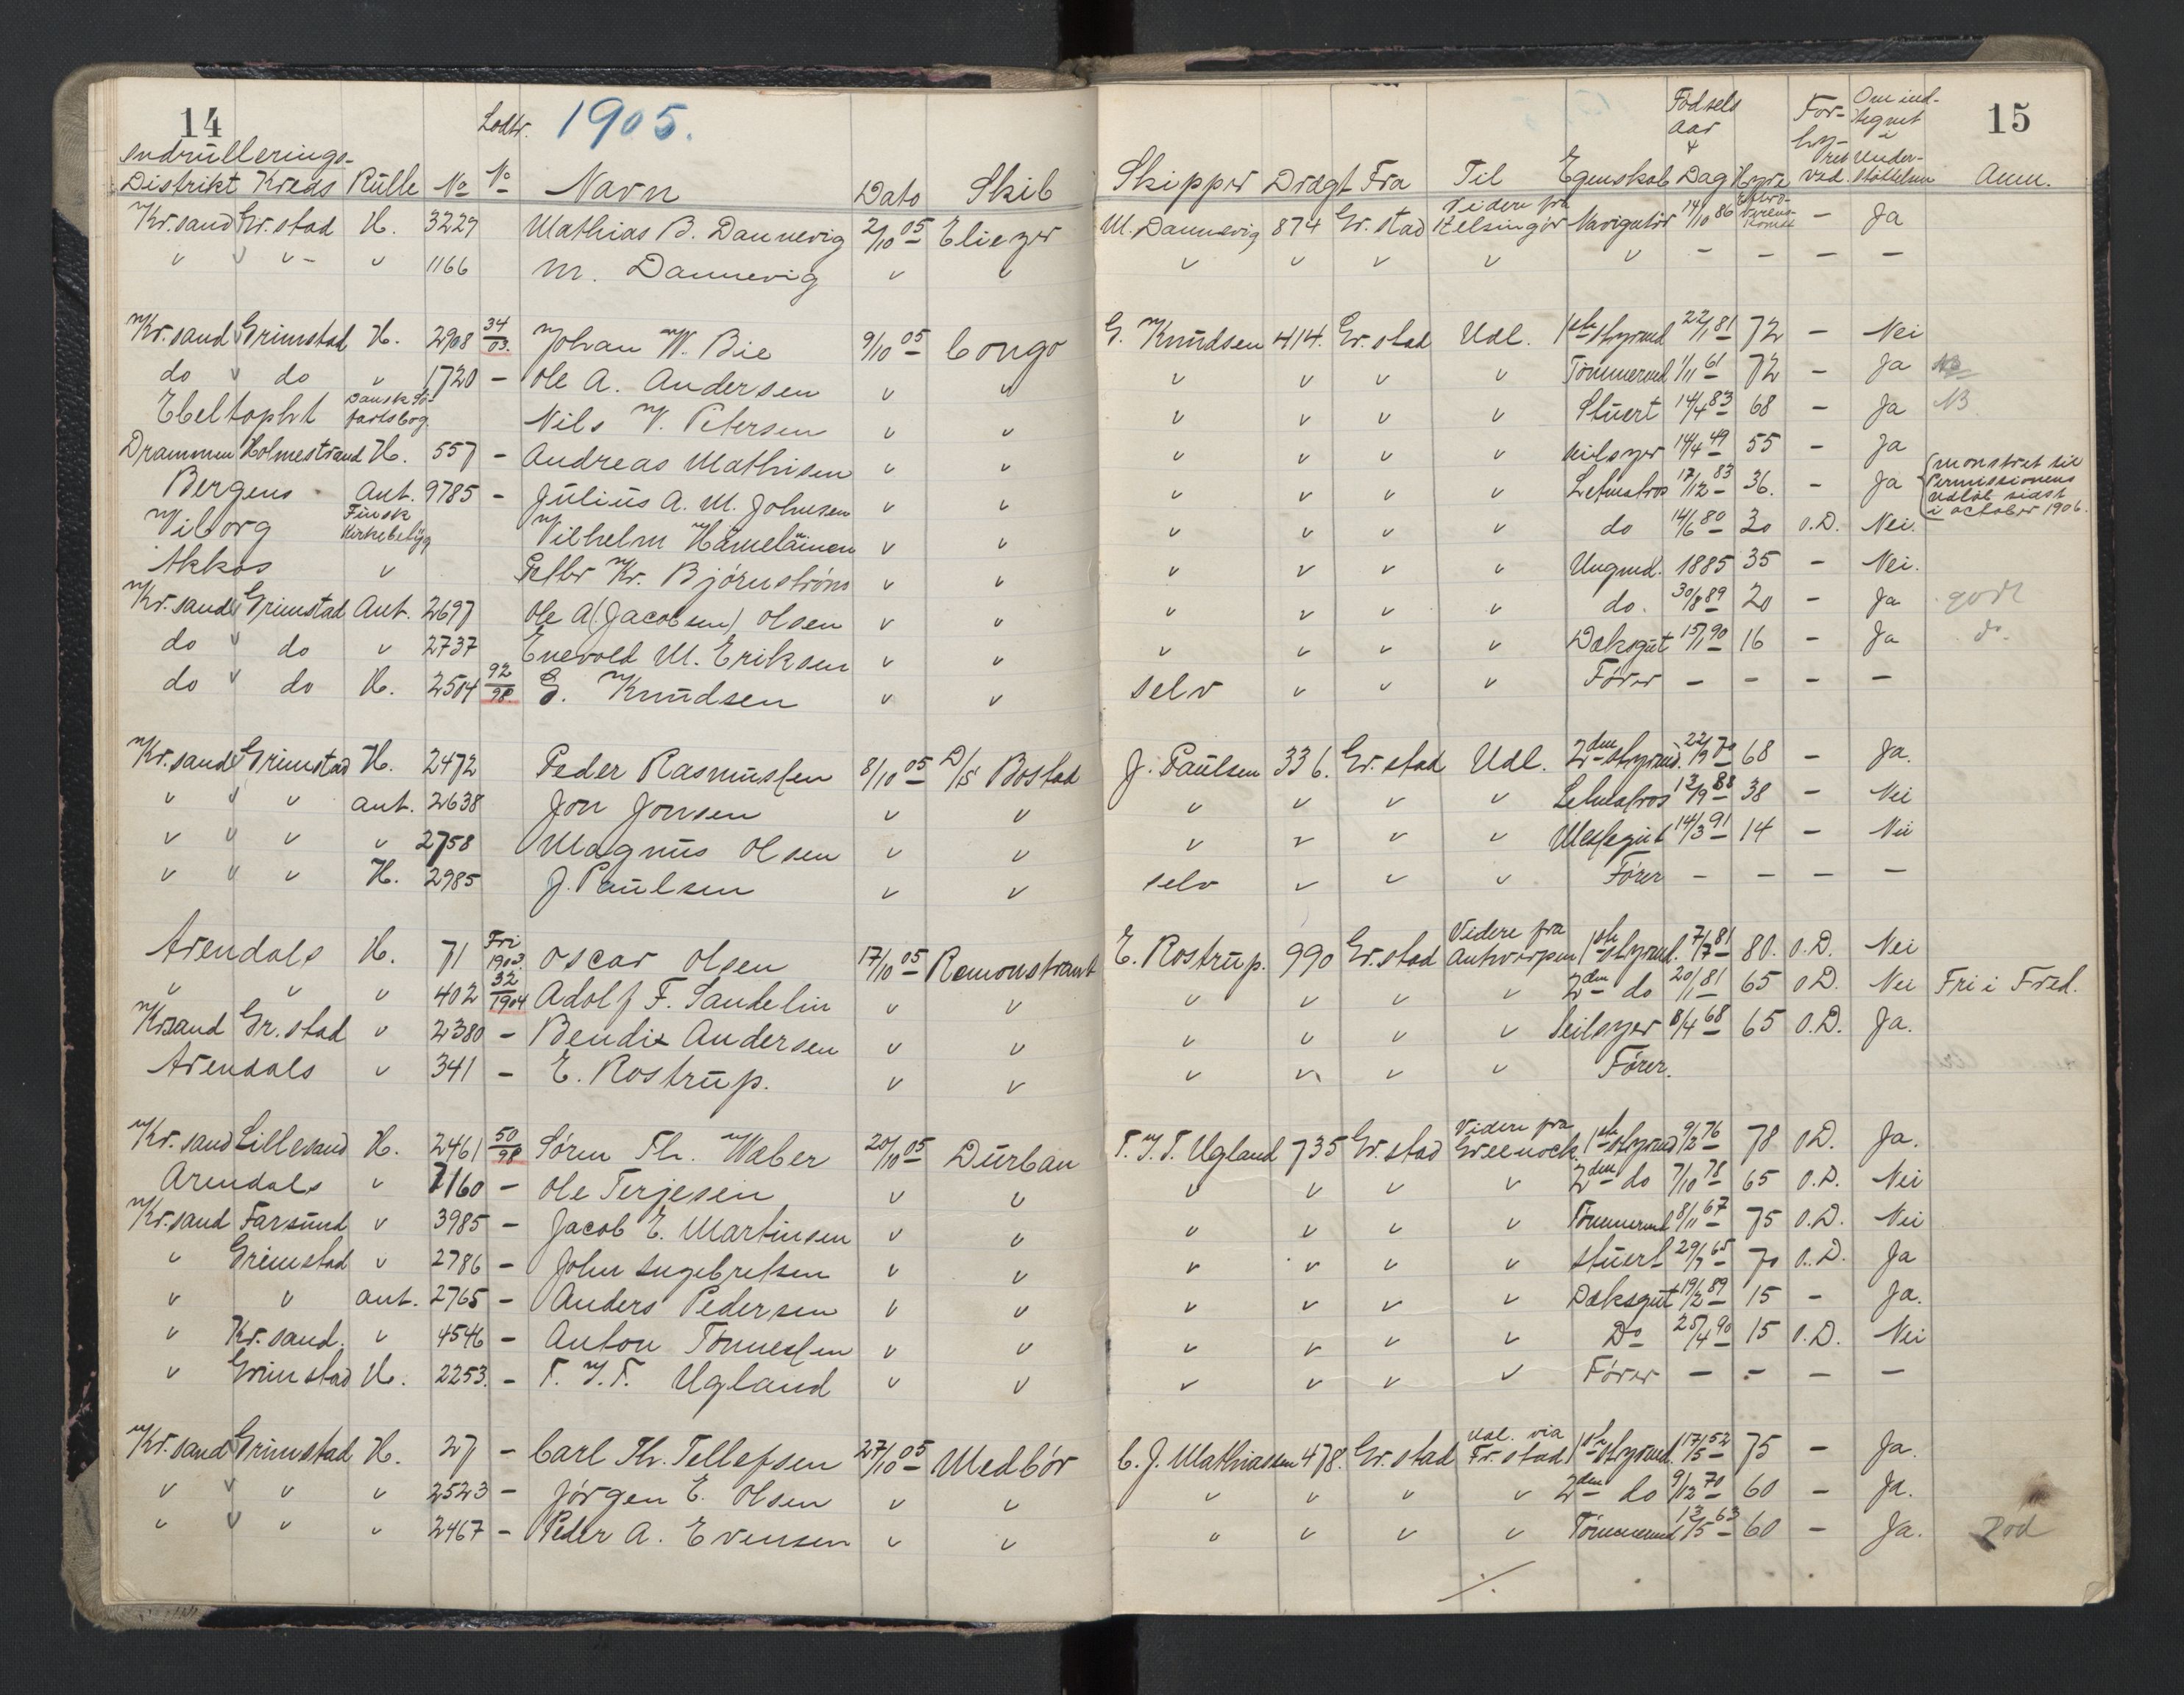 14 Lodtr. 1905. Fødsels For- Om ind- 15
Indrulleringe- aar tegnet i
Distrikt Kreds Rulle No No Navn Dato Skib Skipper Drægt Fra Til Egenskab Dag Hyre Under-støttelsen Anm.
Kr.sand Gr.stad H. 3227 Mathias B. Dannevig 2/10 05 Eliezer M. Dannevig 874 Gr.stad Videre fra Helsingør Navigatør 14/10 86 – Ja
v v v – v 1166 M. Dannevig v v v v v v v – – – –
Kr.sand Grimstad H. 2908 34/03. Johan W. Bie 9/10 05 Congo G. Knudsen 414. Gr.stad Udl. 1ste Styrmd 22/1 81 72 – Nei
do v do v 1720 – Ole A. Andersen v v v v v v Tømmermd 1/11 61 72 – Ja NB
Ebeltopht Dansk Sø-fartsbog. Nils V. Petersen v v v v v v Stuert 14/4 83 68 – Ja NB
Drammen Holmestrand H. 557 – Andreas Mathisen v v v v v v Seilmager 14/4 49 55 – Ja
Bergens Ant. 9785 – Julius A. M. Johnsen v v v v v v Letmatros 17/12 83 36. – Ja {mønstret til Permissionens udløb sidst i october 1906.
Viborg Finsk Kirkebelyg Vilhelm Hämeläinen v v v v v v do 14/6 80 30 O.D. Nei.
Akkas v Petter Kr. Bjørnstrøm v v v v v v Ungmd. 1885 35 – Nei.
Kr.sand Grimstad Ant. 2697 Ole A (Jacobsen) Olsen v v v v v v do. 30/8 89 20 – Ja godt
do v do v 2737 Enevold M. Eriksen v v v v v v Dæksgut 15/1 90 16 – Ja do.
do v do H. 2504 92/98. G. Knudsen v v selv v v v Fører – – – –
Kr.sand Grimstad H. 2472 Peder Rasmussen 8/10 05 D/S Bostad J. Paulsen 336. Gr.stad Udl. 2den Styrmd. 22/9 70 68 – Ja.
v v v ant. 2638 Jon Jonsen v v v v v v Letmatros 12/9 88 38 – Nei
v v v v 2758 Magnus Olsen v v v v v v Messegut 14/3 91 14 – Nei
v v v H. 2985 J. Paulsen v v selv v v v Fører – – – –
Arendals H. 71 Fri 1903. Oscar Olsen 17/10 05 Remonstrant E. Rostrup. 990 Gr.stad Videre fra Antwerpen 1ste Styrmd. 7/7 81 80. O.D. Nei
v v v 402 32/1904 Adolf F. Sandelin v v v v v v 2den do 20/11 81 65 O.D. Nei Fri i Fred.
Krsand Gr.stad v 2380 – Bendix Andersen v v v v v v Seilmager 8/4 68 65 O.D. Ja.
Arendals v 341 – E. Rostrup. v v v v v v Fører.
Kr.sand Lillesand H. 2461 50/98 Søren Th. Weber 20/10 05 Durban T. T. Ugland 735 Gr.stad Videre fra Greenock. 1ste Styrmd 9/2 76 78 O.D. Ja.
Arendals v 1160 – Ole Terjesen v v v v v v 2den do 7/10 78 65 O.D. Nei
Kr.sand Farsund v 3985 – Jacob E. Martinsen v v v v v v Tømmermd 8/11 67 75 O.D. Nei
v Grimstad v 2786 – John Ingebretsen v v v v v v Stuert 29/7 65 70 O.D. Ja
v v ant. 2765 – Anders Pedersen v v v v v v Dæksgut 19/2 89 15 – Ja.
v Kr.sand. v 4546 – Anton Tønnessen v v v v v v Do 25/4 90 15 O.D. Nei
v Grimstad H. 2253. – Ugland v v v v v v Fører – – – –
Kr.sand Grimstad H. 27 – Carl Th. Tellefsen 27/10 05 Medbør C. J. Mathiassen 478. Gr.stad Udl. via Fr.stad 1ste Styrmd. 17/5 52 75 – Ja.
v v v v 2523 – Jørgen E. Olsen v v v v v v 2den do 9/12 70 60 – Ja.
v v v v 2467 – Peder A. Evensen v v v v v v Tømmermd 13/5 63 60 – Ja. Død